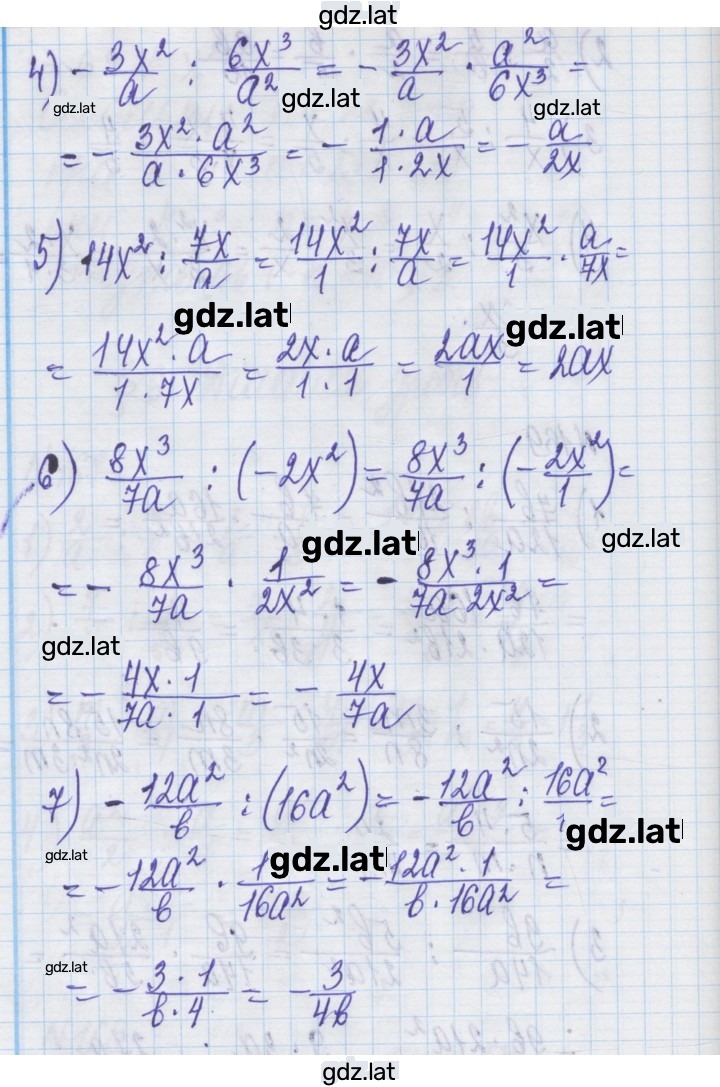 gdz.lat
4) - 3x²/a : 6x³/a² = - 3x²/a · a²/6x³ =
gdz.lat gdz.lat gdz.lat
= - 3x²·a²/a·6x³ = - 1·a/1·2x = - a/2x
5) 14x² : 7x/a = 14x²/1 : 7x/a = 14x²/1 · a/7x =
gdz.lat gdz.lat
= 14x²·a/1·7x = 2x·a/1·1 = 2ax/1 = 2ax
6) 8x³/7a : (-2x²) = 8x³/7a : (- 2x²/1) =
gdz.lat gdz.lat
= - 8x³/7a · 1/2x² = - 8x³·1/7a·2x² =
gdz.lat
= - 4x·1/7a·1 = - 4x/7a
7) - 12a²/b : (16a²) = - 12a²/b : 16a²/1 =
gdz.lat gdz.lat gdz.lat
= - 12a²/b · 1/16a² = - 12a²·1/b·16a² =
gdz.lat
= - 3·1/b·4 = - 3/4b
gdz.lat